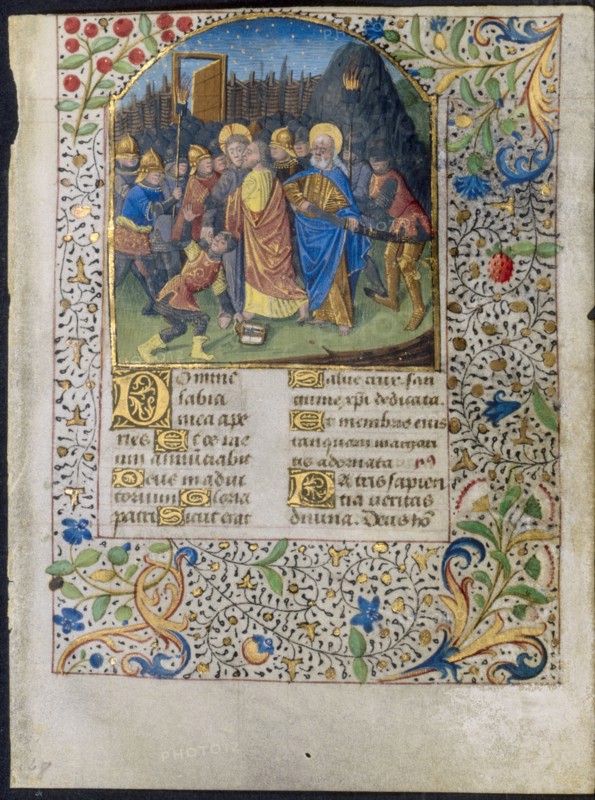 Domine
labia
mea ape
ries Et os me
um annuciabit
Deus in adiu
torium Gloria
patri Sicut erat
Salue crux san
guine xpi dedicata.
Et membris eius
tanquam margari
tis adornata
Patris sapien
tia ueritas
diuina. Deus ho
PHOTO12